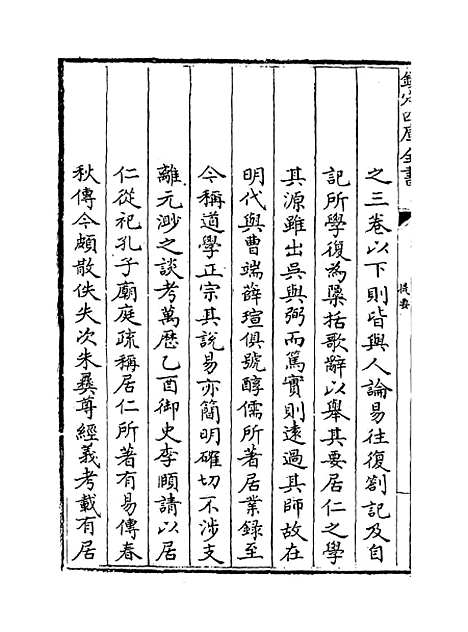 欽定四庫全書
提要
之三卷以下則皆與人論易往復劄記及自
記所學復為檃括歌辭以舉其要居仁之學
其源雖出吳與弼而篤實則遠過其師故在
明代與曹端薛瑄俱號醇儒所著居業錄至
今稱道學正宗其說易亦簡明確切不涉支
離元渺之談考萬歴乙酉御史李頤請以居
仁從祀孔子廟庭疏稱居仁所著有易傳春
秋傳今頗散佚失次朱彞尊經義考載有居